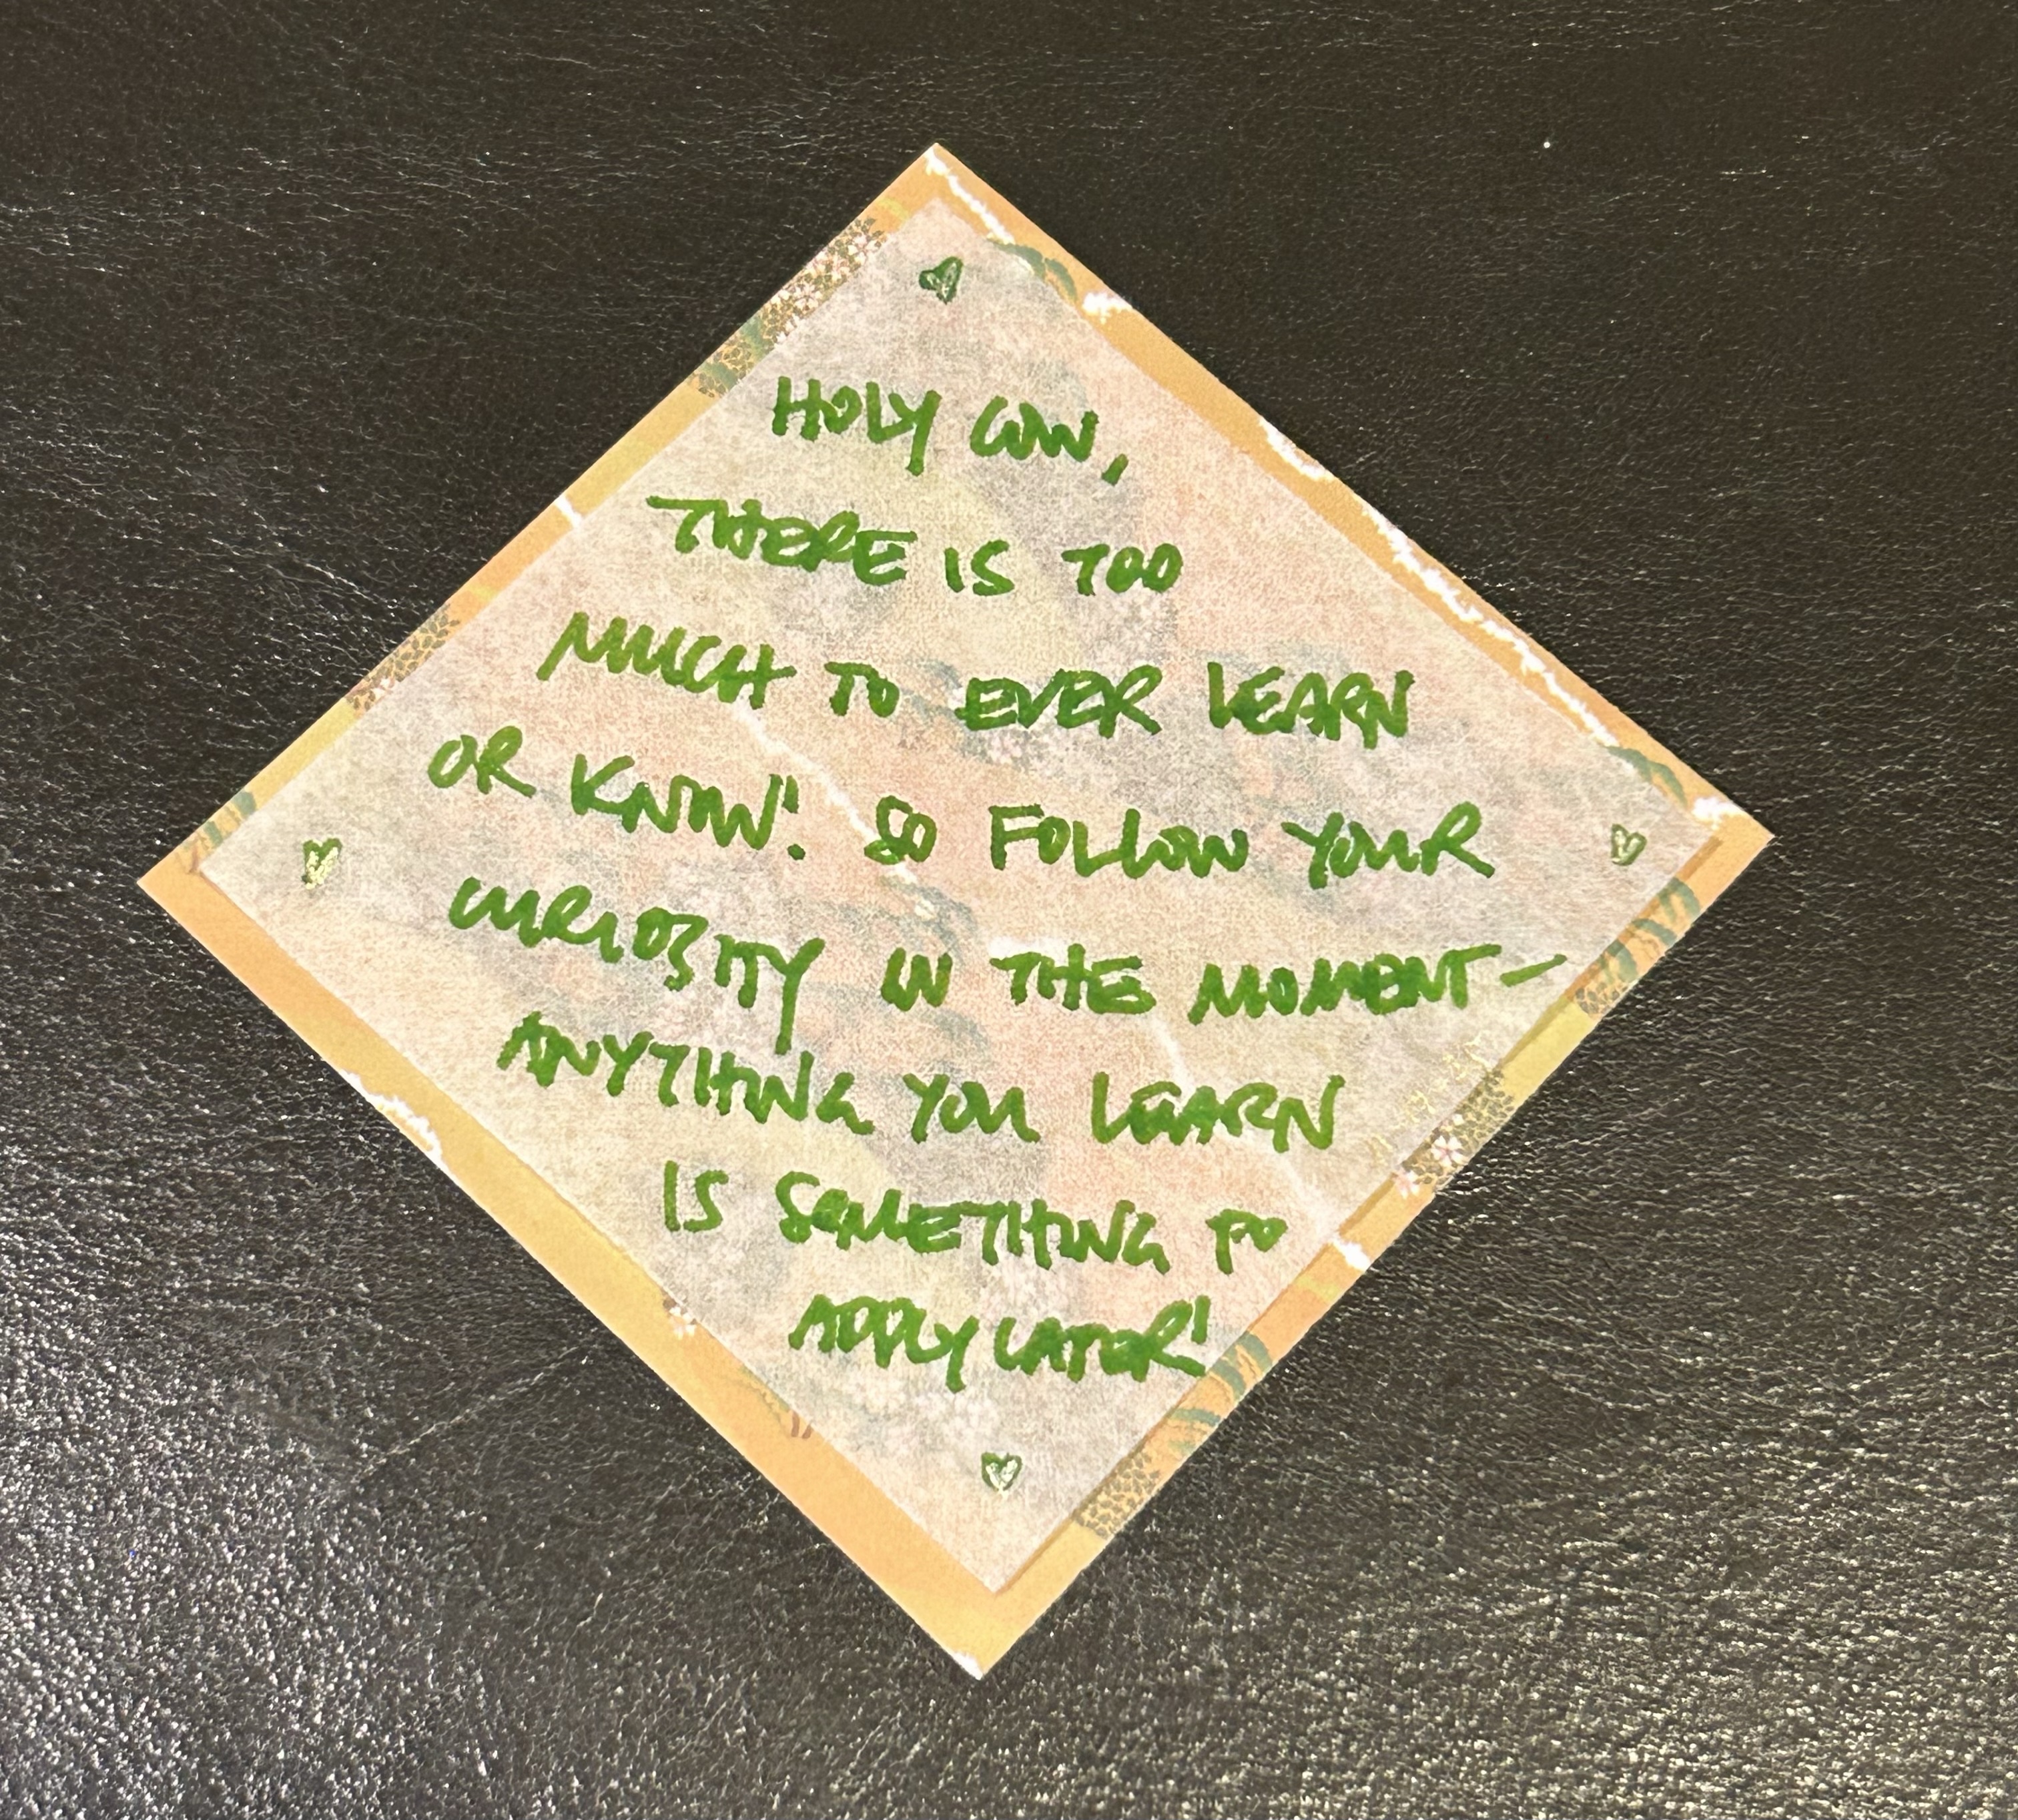 HOLY COW,
THERE IS TOO
MUCH TO EVER LEARN
OR KNOW! SO FOLLOW YOUR
CURIOSITY IN THE MOMENT—
ANYTHING YOU LEARN
IS SOMETHING TO
APPLY LATER!